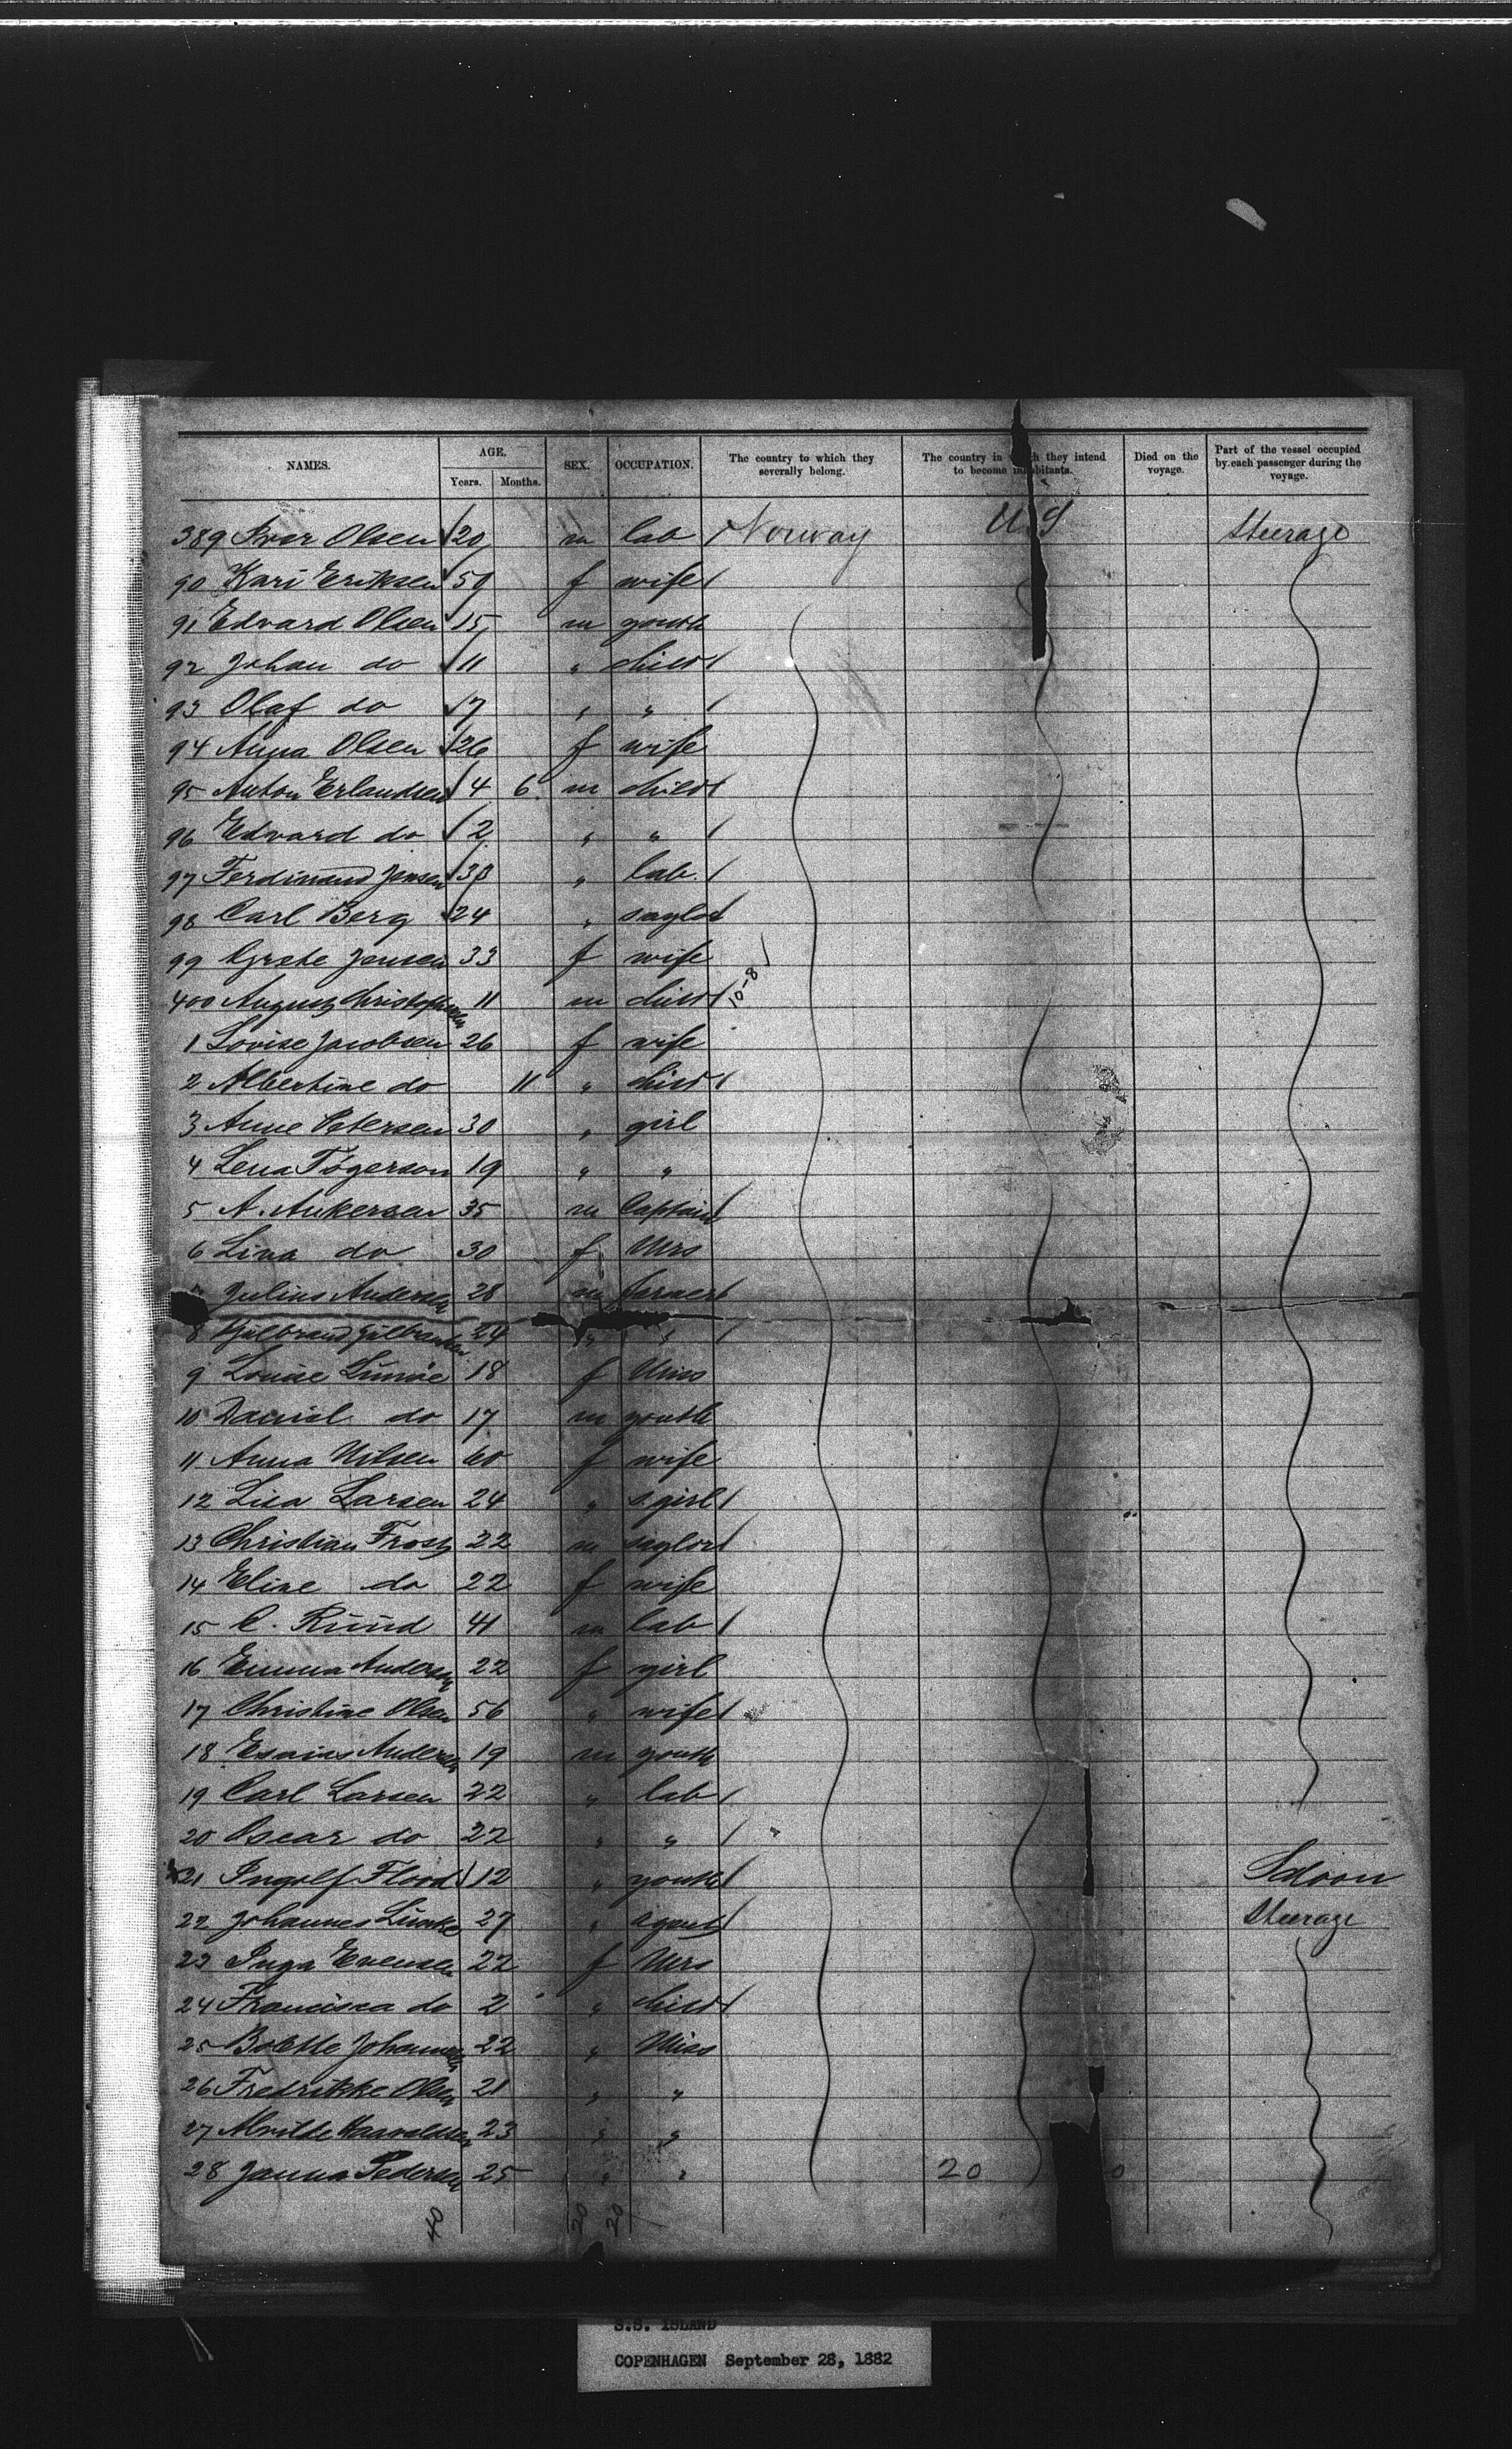 NAMES. AGE. Years. Months. SEX. OCCUPATION. The country to which they severally belong. The country in which they intend to become inhabitants. Died on the voyage. Part of the vessel occupied by each passenger during the voyage.
389 Ivar Olsen 20 m lab Norway U.S Steerage
90 Kari Eriksen 50 f wife
91 Edvard Olsen 15 m youth
92 Johan do 11 " child
93 Olaf do 7 " "
94 Anna Olsen 26 f wife
95 Anton Erlandsen 4 6 m child
96 Edvard do 2 " "
97 Ferdinand Jensen 33 " lab.
98 Carl Berg 24 " saylor
99 Grete Jensen 33 f wife
400 August Christophersen 11 m child 10-8
1 Lovise Jacobsen 26 f wife
2 Albertine do 11 " child
3 Anne Petersen 30 " girl
4 Lena Tögerson 19 " "
5 A. Ankersen 35 m Captain
6 Lina do 30 f Mrs
7 Julius Andersen 28 m farmer
8 24 " "
9 Louise 18 f Miss
10 Daniel do 17 m youth
11 Anna Nilsen 60 f wife
12 Lisa Larsen 24 " s.girl
13 Christian Frost 22 m saylor
14 Eline do 22 f wife
15 C. Rŭŭd 41 m lab
16 Emma Andersen 22 f girl
17 Christine Olsen 56 " wife
18 Esaias Andersen 19 m youth
19 Carl Larsen 22 " lab
20 Oscar do 22 " "
21 Ingolf Flood 12 " youth Saloon
22 Johannes 27 " agent Steerage
23 Inga Evensen 22 f Mrs
24 Francisca do 2 " child
25 Bolette Johannesen 22 " Miss
26 Fredrikke Olsen 21 " "
27 Haraldsen 23 " "
28 Janna Pedersen 25 " " 20 0
40 20 20
S.S. ISLAND
COPENHAGEN September 28, 1882